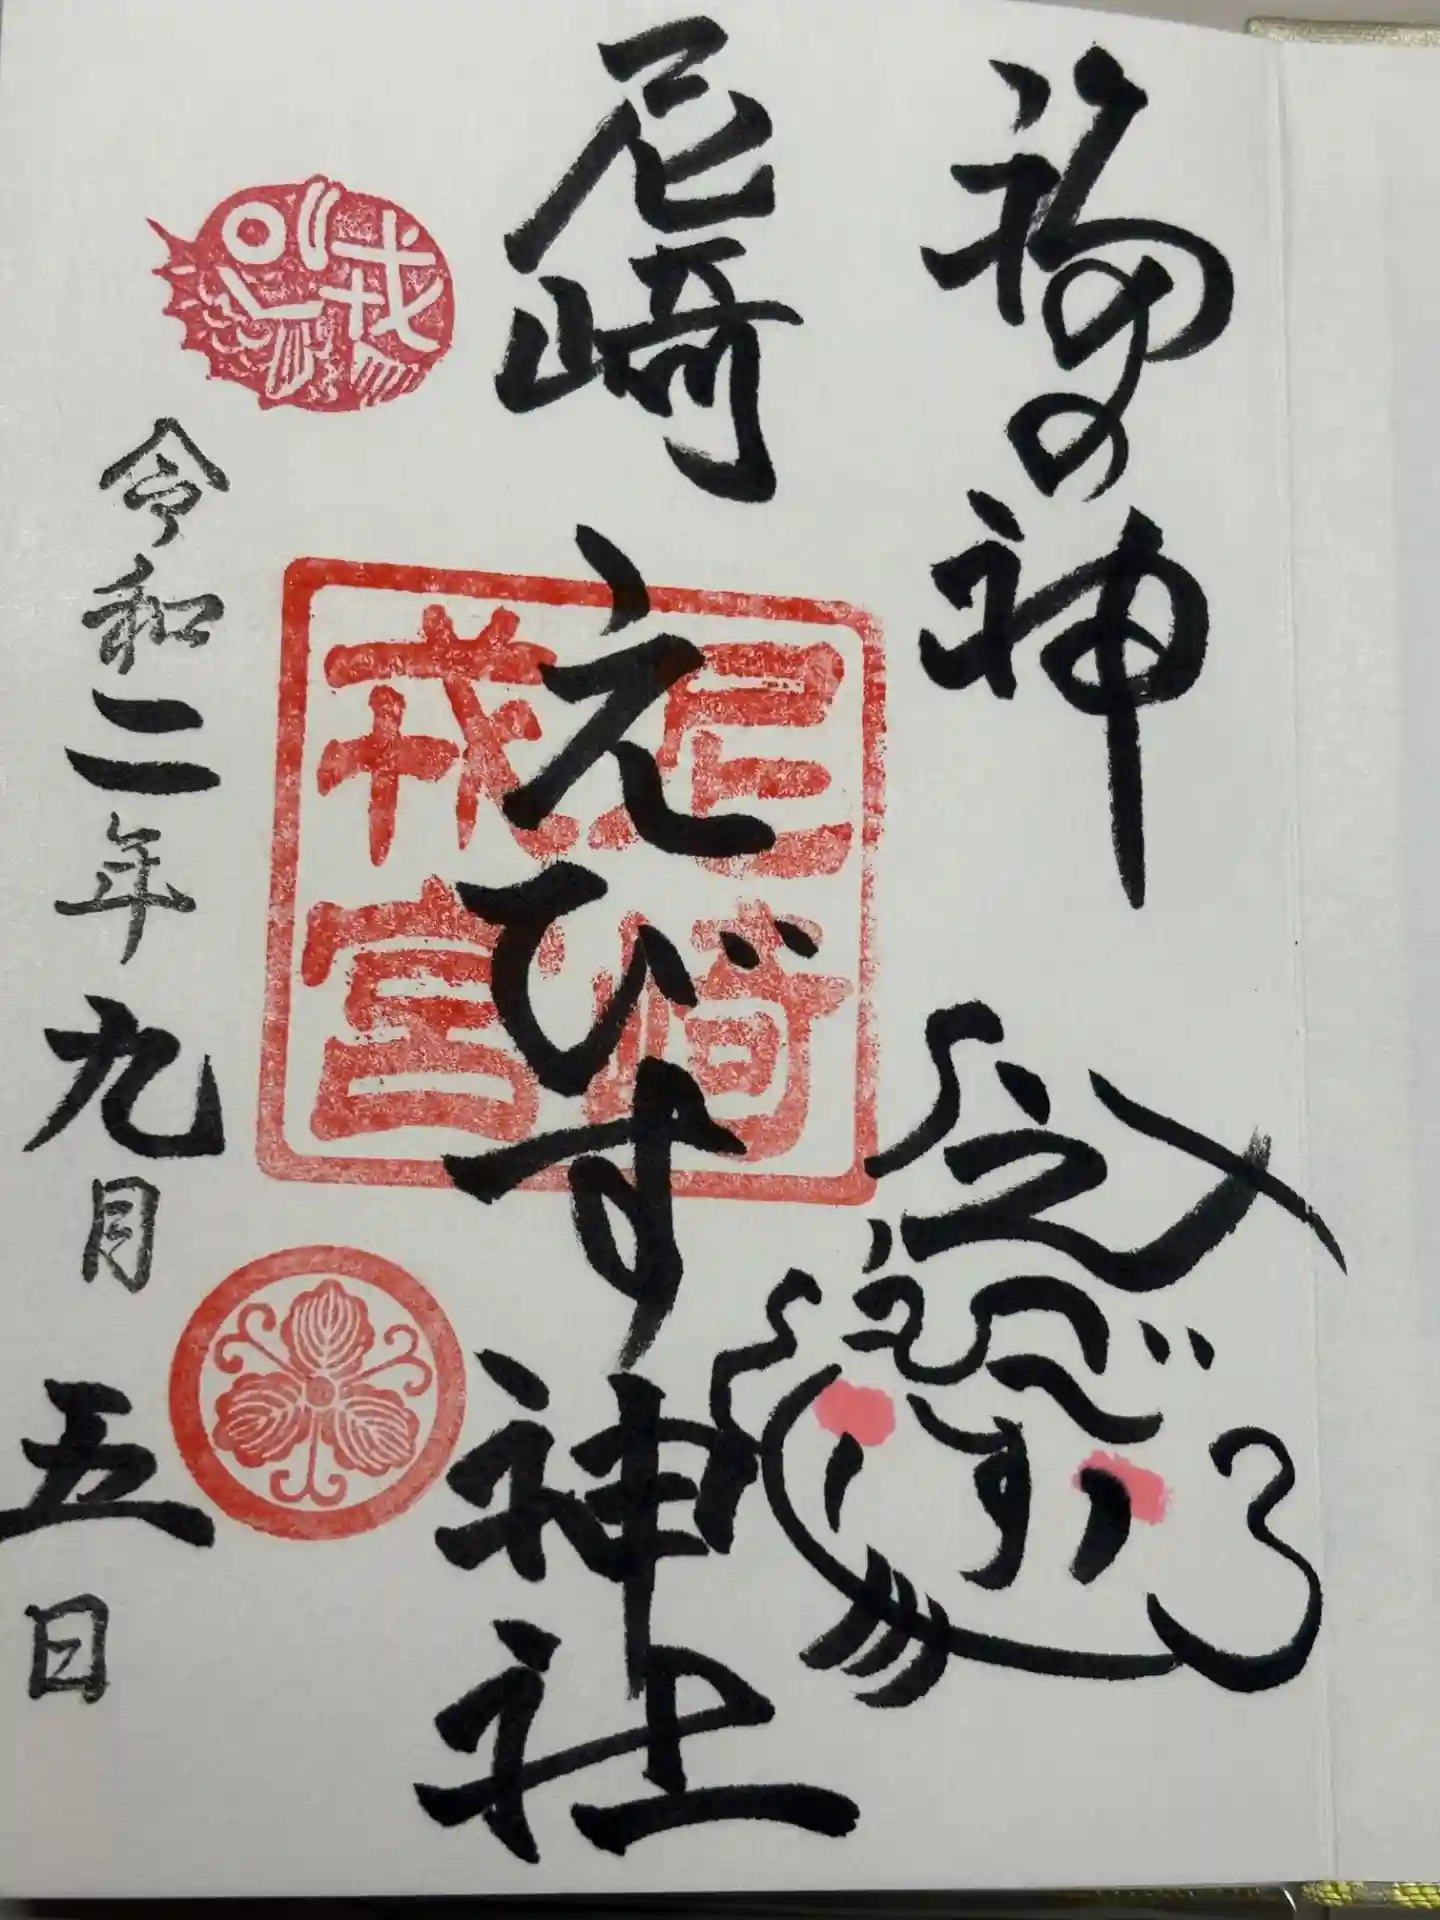 福の神
えびす
尼崎えびす神社
尼崎
戎宮
戎
令和二年九月五日